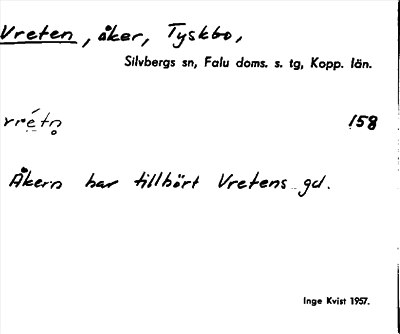 Vreten, åker, Tyskbo,
Silvbergs sn, Falu doms. s. tg, Kopp. län.
vrétn̥ 158
Åkern har tillhört Vretens gd.
Inge Kvist 1957.